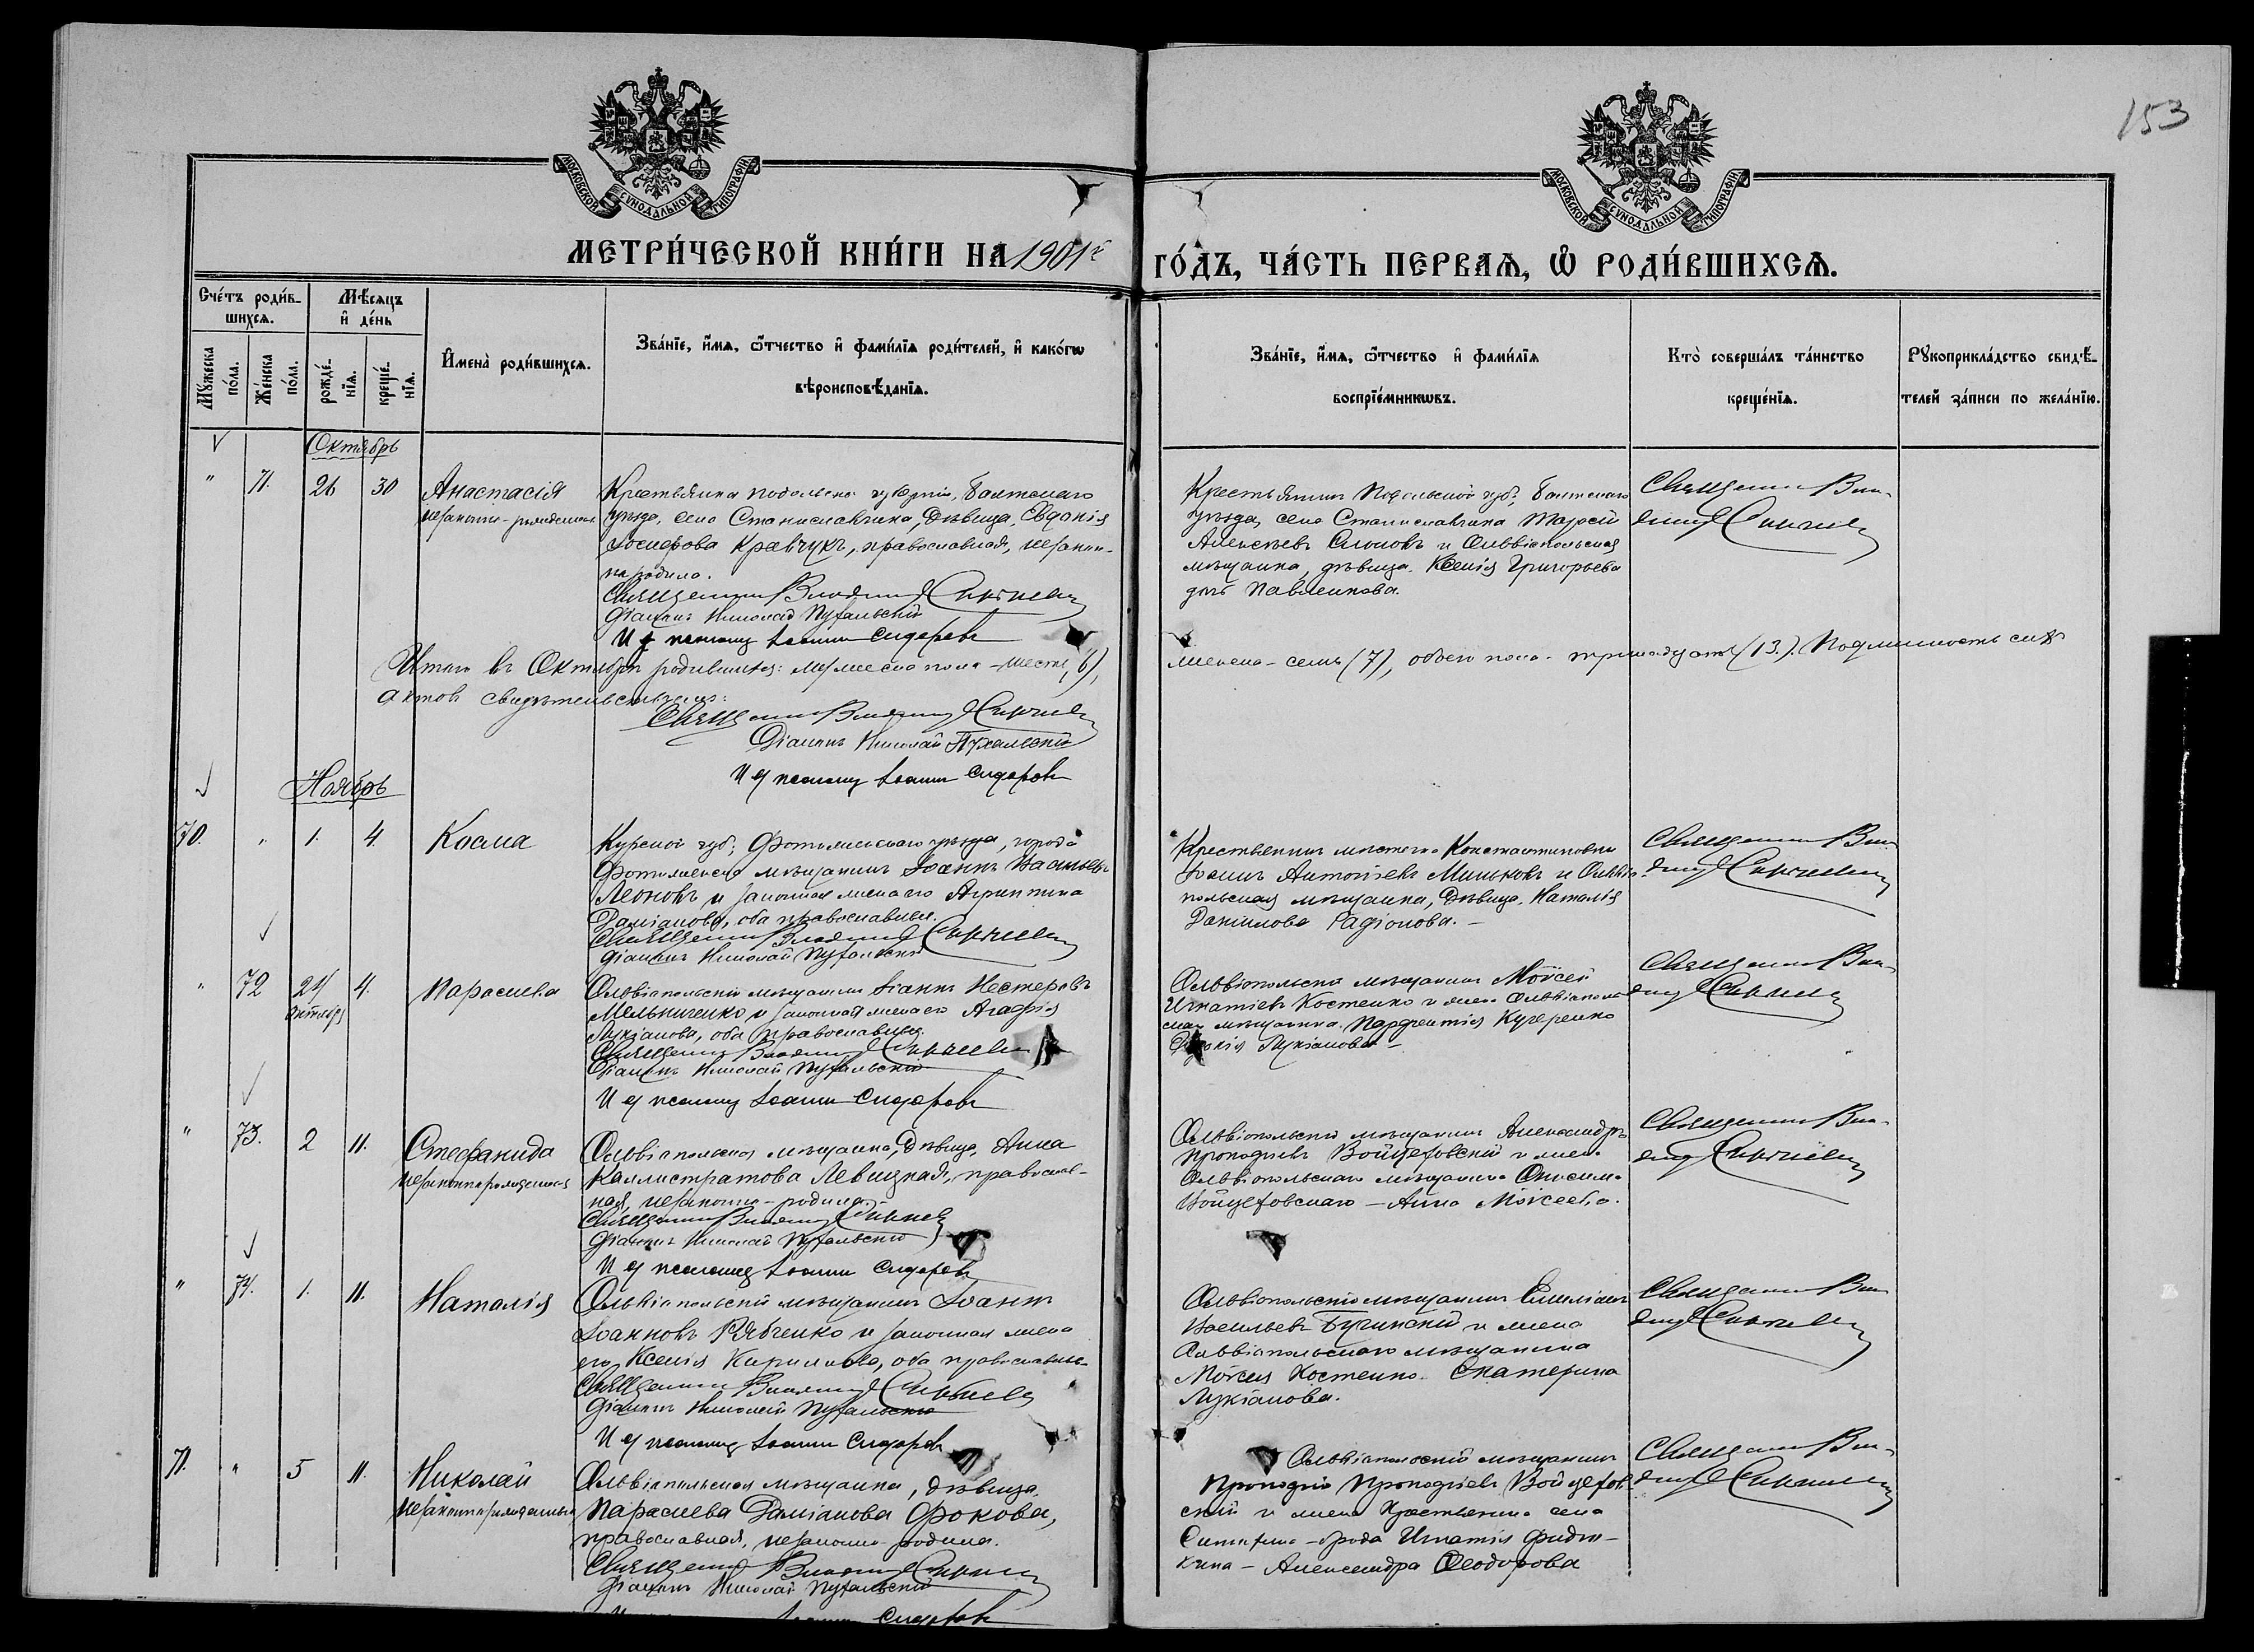 153
МОСКОВСКОЙ СѴНОДАЛЬНОЙ ТИПОГРАФІИ
МОСКОВСКОЙ СѴНОДАЛЬНОЙ ТИПОГРАФІИ
МЕТРИ́ЧЕСКОЙ КНИ́ГИ НА 1901й
ГО́ДЪ, ЧА́СТЬ ПЕРВАѦ, Ѡ҆ РОДИ́ВШИХСѦ.
Сче́тъ роди́в-
шихсѧ.
Мѣ́сяцъ
и҆ де́нь
Мꙋ́жеска
по́ла.
Же́нска
по́ла.
рожде́-
нїѧ.
креще́-
нїѧ.
И҆мена̀ роди́вшихсѧ.
Зва́нїе, и҆́мѧ, ѻ҆́тчество и҆ фами́лїѧ роди́телей, и҆ како́гѡ
вѣроисповѣ́данїѧ.
Зва́нїе, и҆́мѧ, ѻ҆́тчество и҆ фами́лїѧ
воспрїе́мникѡвъ.
Кто̀ соверша́лъ та́инство
креще́нїѧ.
Рꙋкоприкла́дство свидѣ́-
телей за́писи по жела́нїю.
Октябрь
" 71. 26 30 Анастасія
незаконно-рожденная
Крестьянка Подольской губерніи, Балтскаго
уѣзда, села Станиславчика, дѣвица, Евдокія
Іосифова Кравчукъ, православная, незакон-
но родила.
Священникъ Владимір
Діаконъ Николай Пухальскій
И д псаломщ Іоаннъ Сидоровъ
Крестьянинъ Подольской губ; Балтскаго
уѣзда, села Станиславчика
Алексѣевъ и Ольвіопольская
мѣщанка, дѣвица Ксенія Григорьева
дочь Павленкова.
Священникъ Вла-
димір
Итого въ Октябрѣ родившихся: мужескаго пола - шесть (6),
женска - семь (7), обоего пола - тринадцать (13). Подлинность сихъ
актовъ свидѣтельствуемъ:
Священникъ Владимір
Діаконъ Николай Пухальскій
И д псаломщ Іоаннъ Сидоровъ
Ноябрь
70. " 1. 4. Косма
Курской губ; уѣзда, города
мѣщанинъ Іоаннъ Васильевъ
Леоновъ и законная жена его Агриппина
Даміанова, оба православные.
Священникъ Владимір
Діаконъ Николай Пухальскій
Крестьянинъ мѣстечка Константиновки
Іоаннъ Антоніевъ Миньковъ и Ольвіо-
польская мѣщанка, дѣвица Наталія
Даніилова Радіонова. -
Священникъ Вла-
димір
" 72 24 октября 4. Параскева
Ольвіопольскій мѣщанинъ Іоаннъ Нестеровъ
Мельниченко и законная жена его Агафія
Лукіанова, оба православные.
Священникъ Владимір
Діаконъ Николай Пухальскій
И д псаломщ Іоаннъ Сидоровъ
Ольвіопольскій мѣщанинъ Моѵсей
Игнатіевъ Костенко и жена Ольвіополь-
скаго мѣщанина Парфентія Кучеренко
Лукіанова -
Священникъ Вла-
димір
" 73. 2 11. Стефанида
незаконнорожденная
Ольвіопольская мѣщанка, дѣвица, Анна
Каллистратова Левицкая, православ-
ная, незаконно-родила.
Священникъ Владимір
Діаконъ Николай Пухальскій
И д псаломщ Іоаннъ Сидоровъ
Ольвіопольскій мѣщанинъ Александръ
Прокопіевъ Войцеховскій и жена
Ольвіопольскаго мѣщанина Онисима
Войцеховскаго - Анна Моѵсеева.
Священникъ Вла-
димір
" 74. 1. 11. Наталія
Ольвіопольскій мѣщанинъ Іоаннъ
Іоанновъ Рябченко и законная жена
его Ксенія Кириллова, оба православные
Священникъ Владимір
Діаконъ Николай Пухальскій
И д псаломщ Іоаннъ Сидоровъ
Ольвіопольскій мѣщанинъ Емиліанъ
Васильевъ и жена
Ольвіопольскаго мѣщанина
Моѵсея Костенко Екатерина
Лукіанова.
Священникъ Вла-
димір
71. " 5 11. Николай
незаконнорожденный
Ольвіопольская мѣщанка, дѣвица
Параскева Даміанова Фокова,
православная, незаконно родила.
Священникъ Владимір
Діаконъ Николай Пухальскій
Іоаннъ Сидоровъ
Ольвіопольскій мѣщанинъ
Прокопій Прокопіевъ Войцехов-
скій и жена крестьянина села
Игнатія
Александра Ѳеодорова
Священникъ Вла-
димір